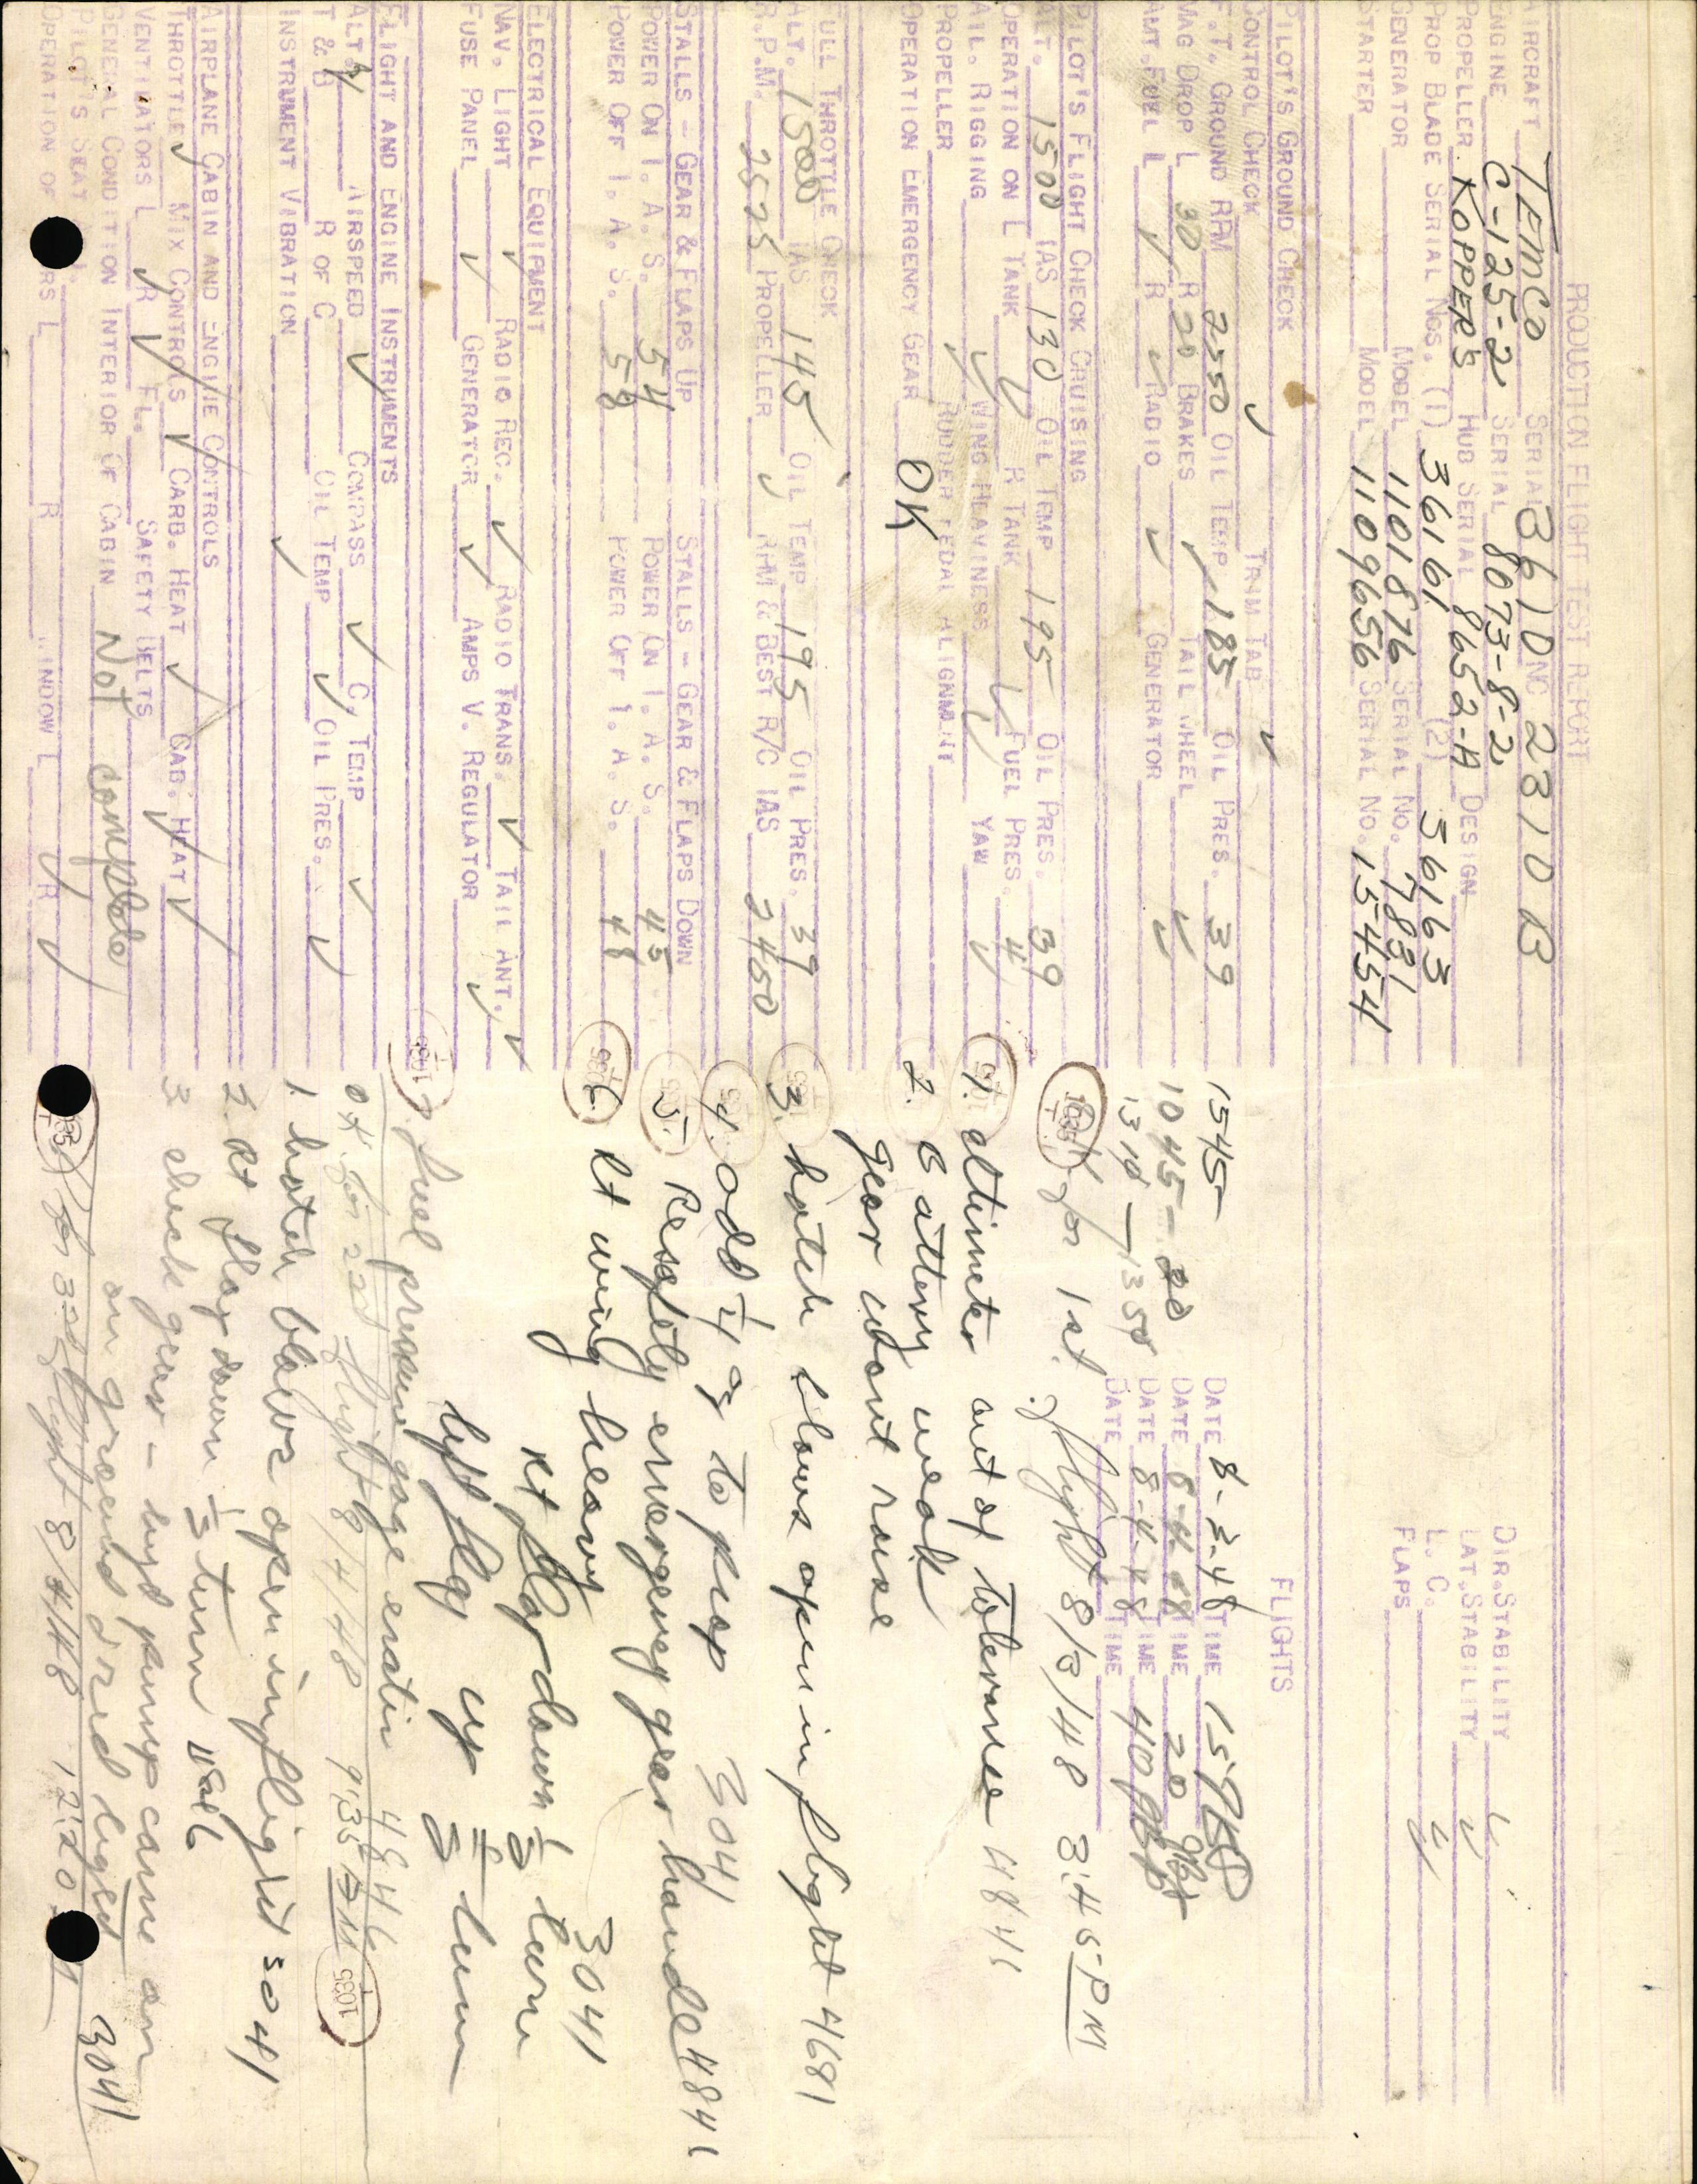 PRODUCTION FLIGHT TEST REPORT
AIRCRAFT TEMCO SERIAL 3610 NC 2310 B
ENGINE C-125-2 SERIAL 8073-8-2
PROPELLER KOPPERS HUB SERIAL 8652-A DESIGN
PROP BLADE SERIAL NOS. (1) 36161 (2) 36163
GENERATOR MODEL 1101876 SERIAL NO. 7831
STARTER MODEL 1109656 SERIAL NO. 15454
DIR. STABILITY ✓
LAT. STABILITY ✓
L. C. ✓
FLAPS
PILOT'S GROUND CHECK
CONTROL CHECK ✓ TRIM TAB ✓
F.T. GROUND RPM 2550 OIL TEMP 185 OIL PRES. 39
MAG DROP L 30 R 20 BRAKES ✓ TAIL WHEEL ✓
AMT. FUEL L ✓ R ✓ RADIO ✓ GENERATOR ✓
FLIGHTS
1545 DATE 8-3-48 TIME 15
1045- DATE TIME 20
1310 - 1350 DATE 8-4-48 TIME 40
DATE TIME
PILOT'S FLIGHT CHECK CRUISING
ALT. 1500 IAS 130 OIL TEMP 195 OIL PRES. 39
OPERATION ON L TANK ✓ R TANK ✓ FUEL PRES. 4
AIL. RIGGING ✓ WING HEAVINESS ✓ YAW ✓
PROPELLER RUDDER PEDAL ALIGNMENT
OPERATION EMERGENCY GEAR OK
FULL THROTTLE CHECK
ALT. 1500 IAS 145 OIL TEMP 195 OIL PRES. 39
R.P.M. 2525 PROPELLER ✓ RPM & BEST R/C IAS 2450
STALLS - GEAR & FLAPS UP STALLS - GEAR & FLAPS DOWN
POWER ON I. A. S. 54 POWER ON I. A. S. 45
POWER OFF I. A. S. 58 POWER OFF I. A. S. 48
ELECTRICAL EQUIPMENT
NAV. LIGHT ✓ RADIO REC. ✓ RADIO TRANS. ✓ TAIL ANT. ✓
FUSE PANEL ✓ GENERATOR ✓ AMPS V. REGULATOR ✓
FLIGHT AND ENGINE INSTRUMENTS
ALT. ✓ AIRSPEED ✓ COMPASS ✓ C. TEMP ✓
T & B R OF C OIL TEMP ✓ OIL PRES. ✓
INSTRUMENT VIBRATION ✓
AIRPLANE CABIN AND ENGINE CONTROLS
THROTTLE ✓ MIX CONTROLS ✓ CARB. HEAT ✓ CAB. HEAT ✓
VENTILATORS L ✓ R ✓ FL. SAFETY BELTS
GENERAL CONDITION INTERIOR OF CABIN Not complete
PILOT'S SEAT
OPERATION OF L R WINDOW L ✓ R ✓
for 1st flight 8/3/48 3:45 PM
1. altimeter out of tolerance 4841
2. Battery weak
gear wont raise
3. hatch blows open in flight 4681
4. add 1/4 to prop 3041
5. emergency gear handle 4841
6. Rt wing heavy 3041
Rt flap down 1/3 turn
left flap up turn
7. fuel pressure gage eratic 4846
OK for 2nd flight 8/4/48 9:35
1. hatch blows open in flight 3041
2. Rt flap down 1/3 turn
3. check gear - hyd pump came on
on ground 3041
for 3rd flight 8/4/48 12:20